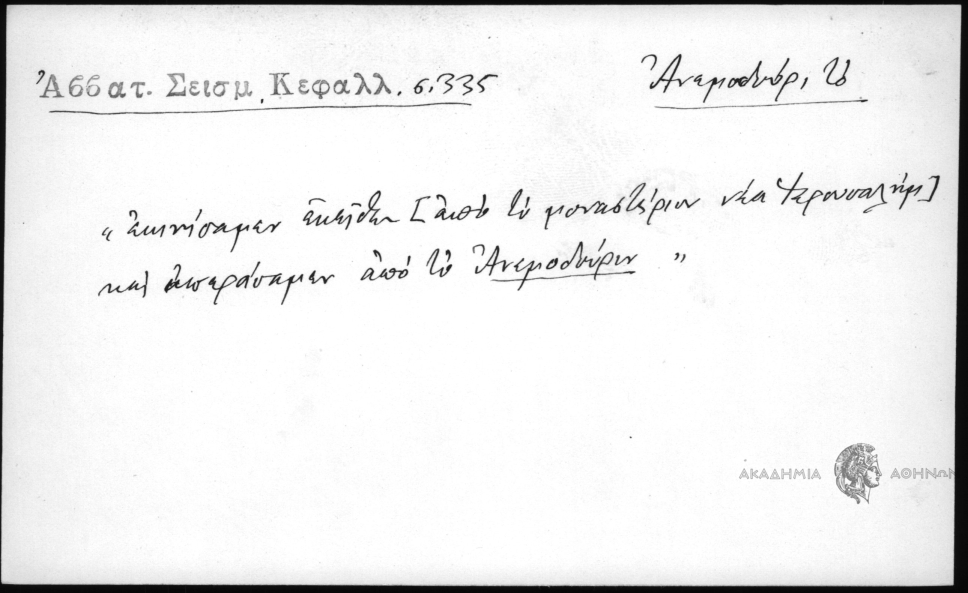 Ἀββατ. Σεισμ. Κεφαλλ. σ. 335
Ἀνεμοδούρ, τὸ
„ ἐκινήσαμεν ἐκεῖθεν [ἀπὸ τὸ μοναστήριον νέα Ἱερουσαλήμ]
καὶ ἐπεράσαμεν ἀπὸ τὸ Ἀνεμοδούριν „
ΑΚΑΔΗΜΙΑ ΑΘΗΝΩΝ